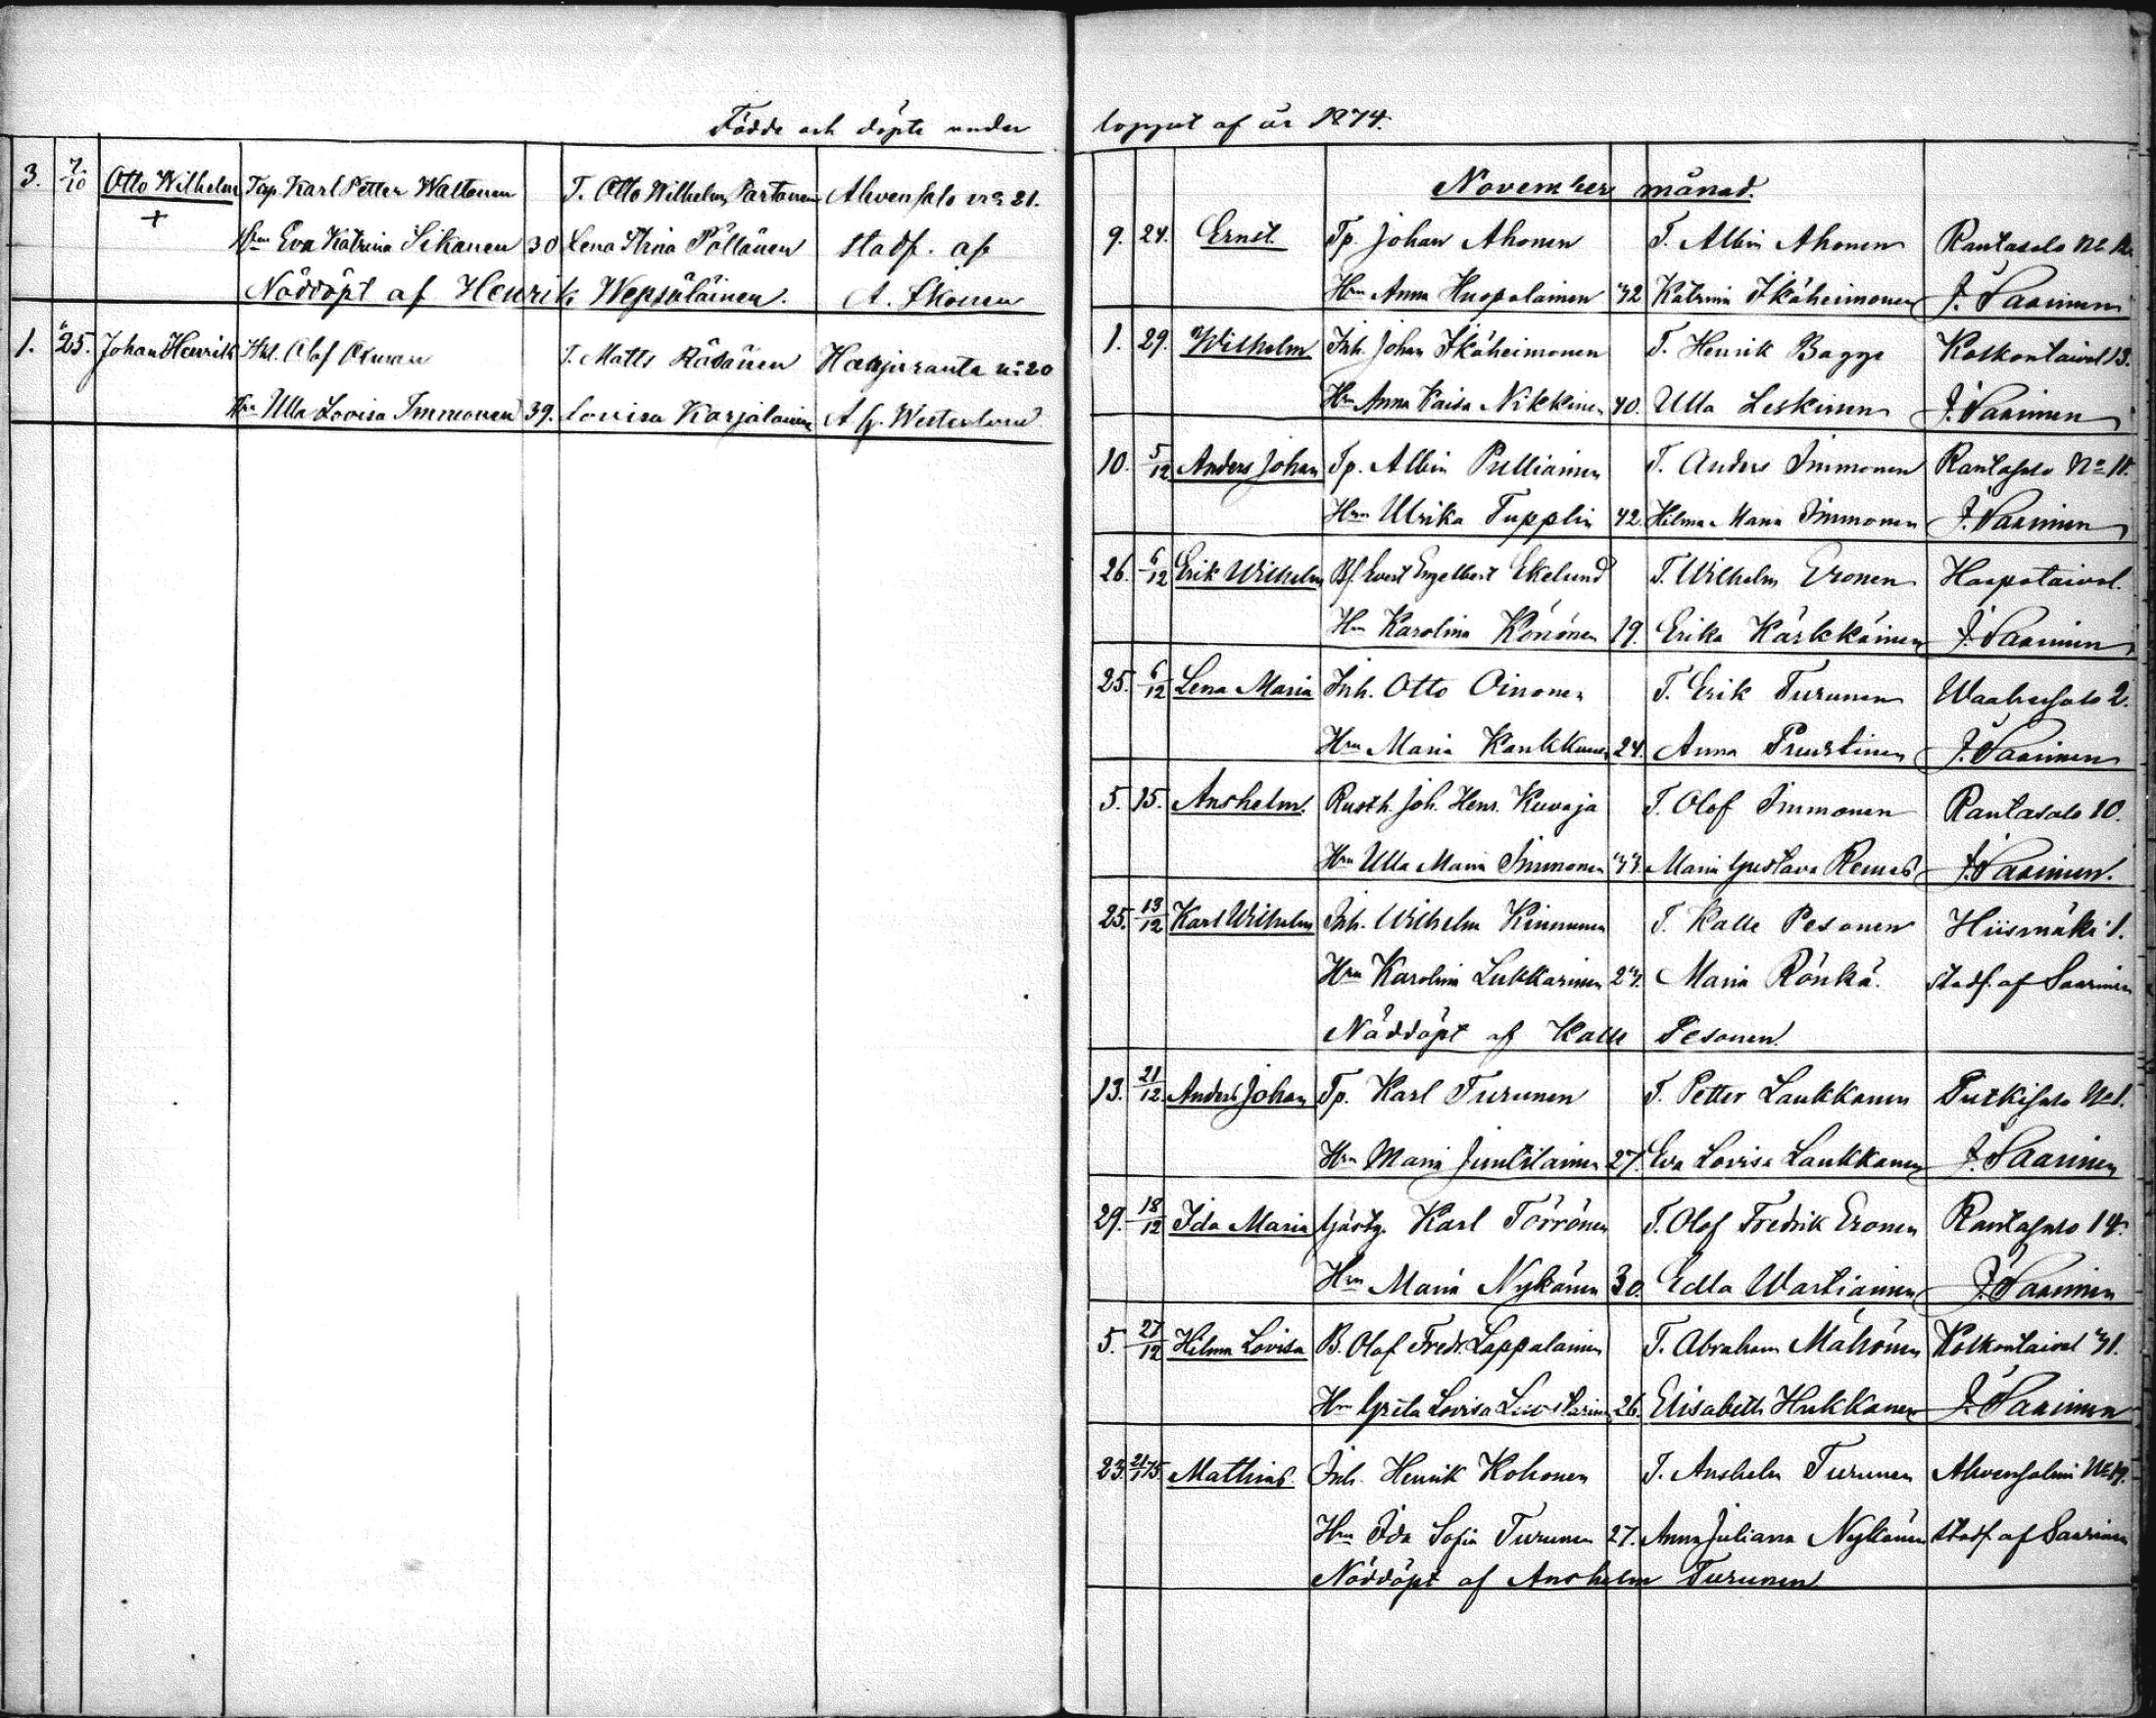 Födde och döpte under loppet af år 1874.
3. 7/10 Otto Wilhelm Tp. Karl Petter Waltonen T. Otto Wilhelm Partanen Ahvensalo no 21.
+ Hrn Eva Katrina Sikanen 30 Lena Stina Pöllänen stadf. af
Nöddöpt af Henrik Wepsäläinen. A. Ikonen
1. 25. Johan Henrik Olof T. Matts Räsänen Hanjuranta no 20
Hrn Ulla Lovisa Immonen 39. Lovisa Karjalainen A. G. Westerlund
November månad.
9. 24. Ernst Tp. Johan Ahonen T. Albin Ahonen Rantasalo No
Hrn Anna Huopolainen 42 Katrina Ikäheimonen J. Saarinen
1. 29. Wilhelm Inh. Johan Ikäheimonen T. Henrik Bagge Koskontaival 13.
Hrn Anna Kaisa Nikkinen 40. Ulla Leskinen J. Saarinen
10. 5/12 Anders Johan Tp. Albin Pulliainen T. Anders Immonen Rantasalo No 11.
Hrn Ulrika Tupplin 42. Hilma Maria Immonen J. Saarinen
26. 6/12 Erik Wilhelm Bf. Evert Engelbert Ekelund T. Wilhelm Eronen Haapataival.
Hrn Karolina Könönen 19. Erika Kärkkäinen J. Saarinen
25. 6/12 Lena Maria Inh. Otto Oinonen T. Erik Turunen Waahersalo 2.
Hrn Maria Kankkunen 24. Anna Puustinen J. Saarinen
5. 15. Anshelm. Rusth. Joh. Henr. Kuvaja T. Olof Immonen Rantasalo 10.
Hrn Ulla Maria Immonen 43. Maria Gustava Remes J. Saarinen.
25. 13/12 Karl Wilhelm Inh. Wilhelm Kinnunen T. Kalle Pesonen Hiismäki 1.
Hrn Karolina Lukkarinen 24. Maria Rönkä. stadf. af Saarinen
Nöddöpt af Kalle Pesonen.
13. 21/12. Anders Johan Tp. Karl Turunen T. Petter Laukkanen Putkisalo No 1.
Hrn Maria Juntilainen 27. Eva Lovisa Laukkanen J. Saarinen
29. 18/12 Ida Maria Gästg. Karl Törrönen T. Olof Fredrik Eronen Rantasalo 14.
Hrn Maria Nykänen 30. Edla Wartiainen J. Saarinen
5. 27/12 Hilma Lovisa B. Olof Fredr. Lappalainen T. Abraham Mähönen Koskontaival 41.
Hrn Greta Lovisa 26. Elisabeth Hukkanen J. Saarinen
23. 21/1 75 Mathias. Inh. Henrik Kohonen T. Anshelm Turunen Ahvensalmi No 19.
Hrn Ida Sofia Turunen 27. Anna Juliana Nykänen stadf. af Saarinen
Nöddöpt af Anshelm Turunen